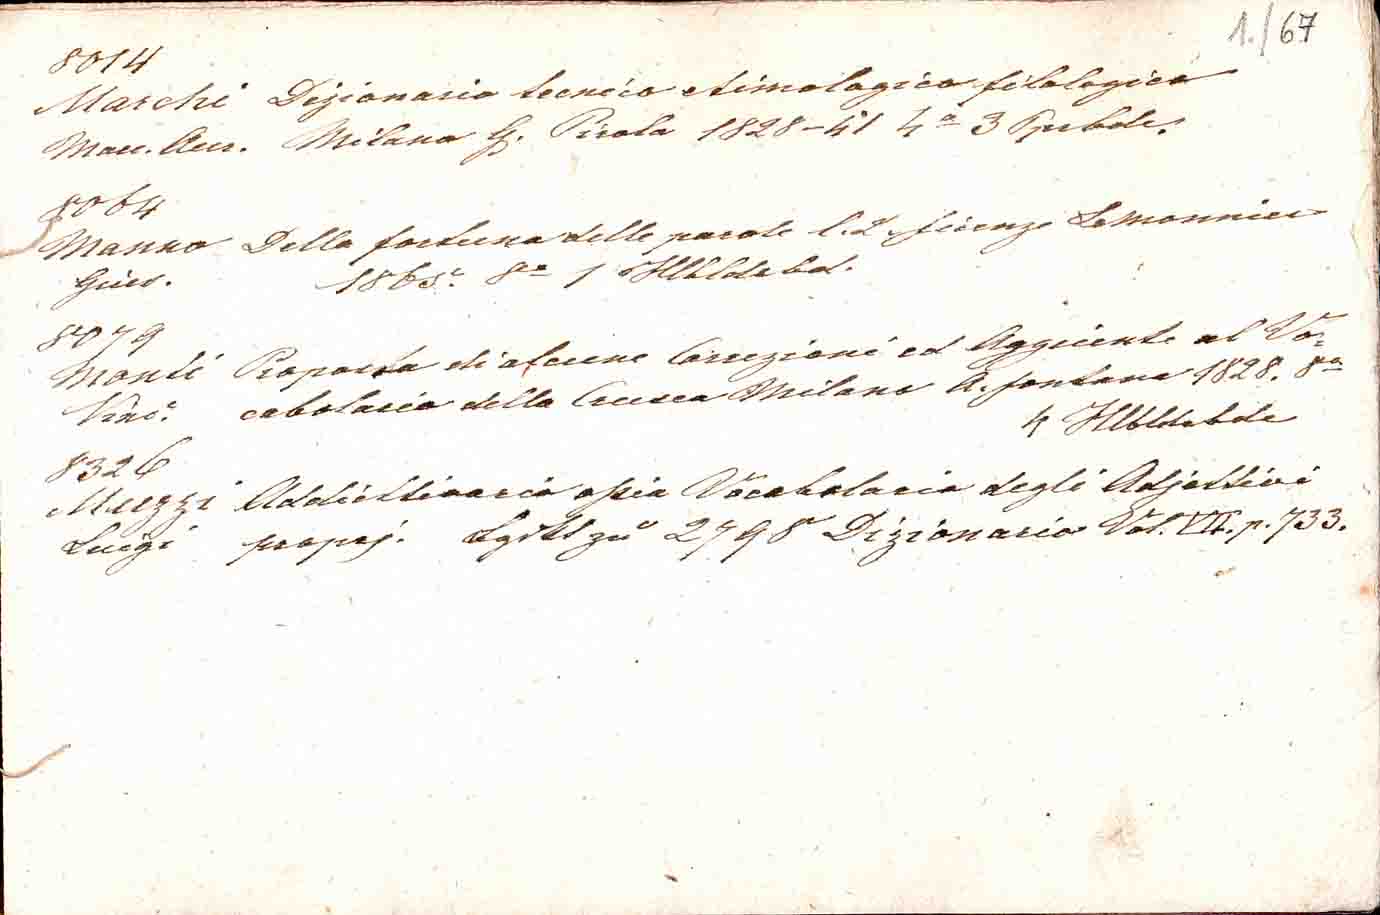 1./67
8014
Marchi Dizionario tecnico etimologico filologico
Mar. Aur. Milano G. Pirola 1828-41 4° 3 Hrbde.
8064
Manno Della fortuna delle parole l. 2. firenze Lemonnier
Gius. 1863. 8° 1 Hlbldrbd.
8079
Monti Proposta di alcune Correzioni ed Aggiunte al Vo-
Vinc. cabolario della Crusca Milano A. fontana 1828. 8°
4 Hlbldrbde
8326
Muzzi Addiettivario ossia Vocabolario degli Adjettivi
Luigi proprj. zu 2798 Dizionario Vol. VII. p. 733.